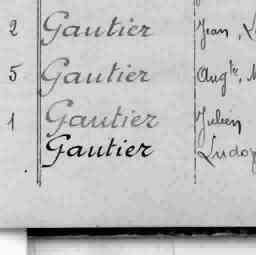 2 Gautier Jean,
5 Gautier Aug^te,
1 Gautier Julien
Gautier